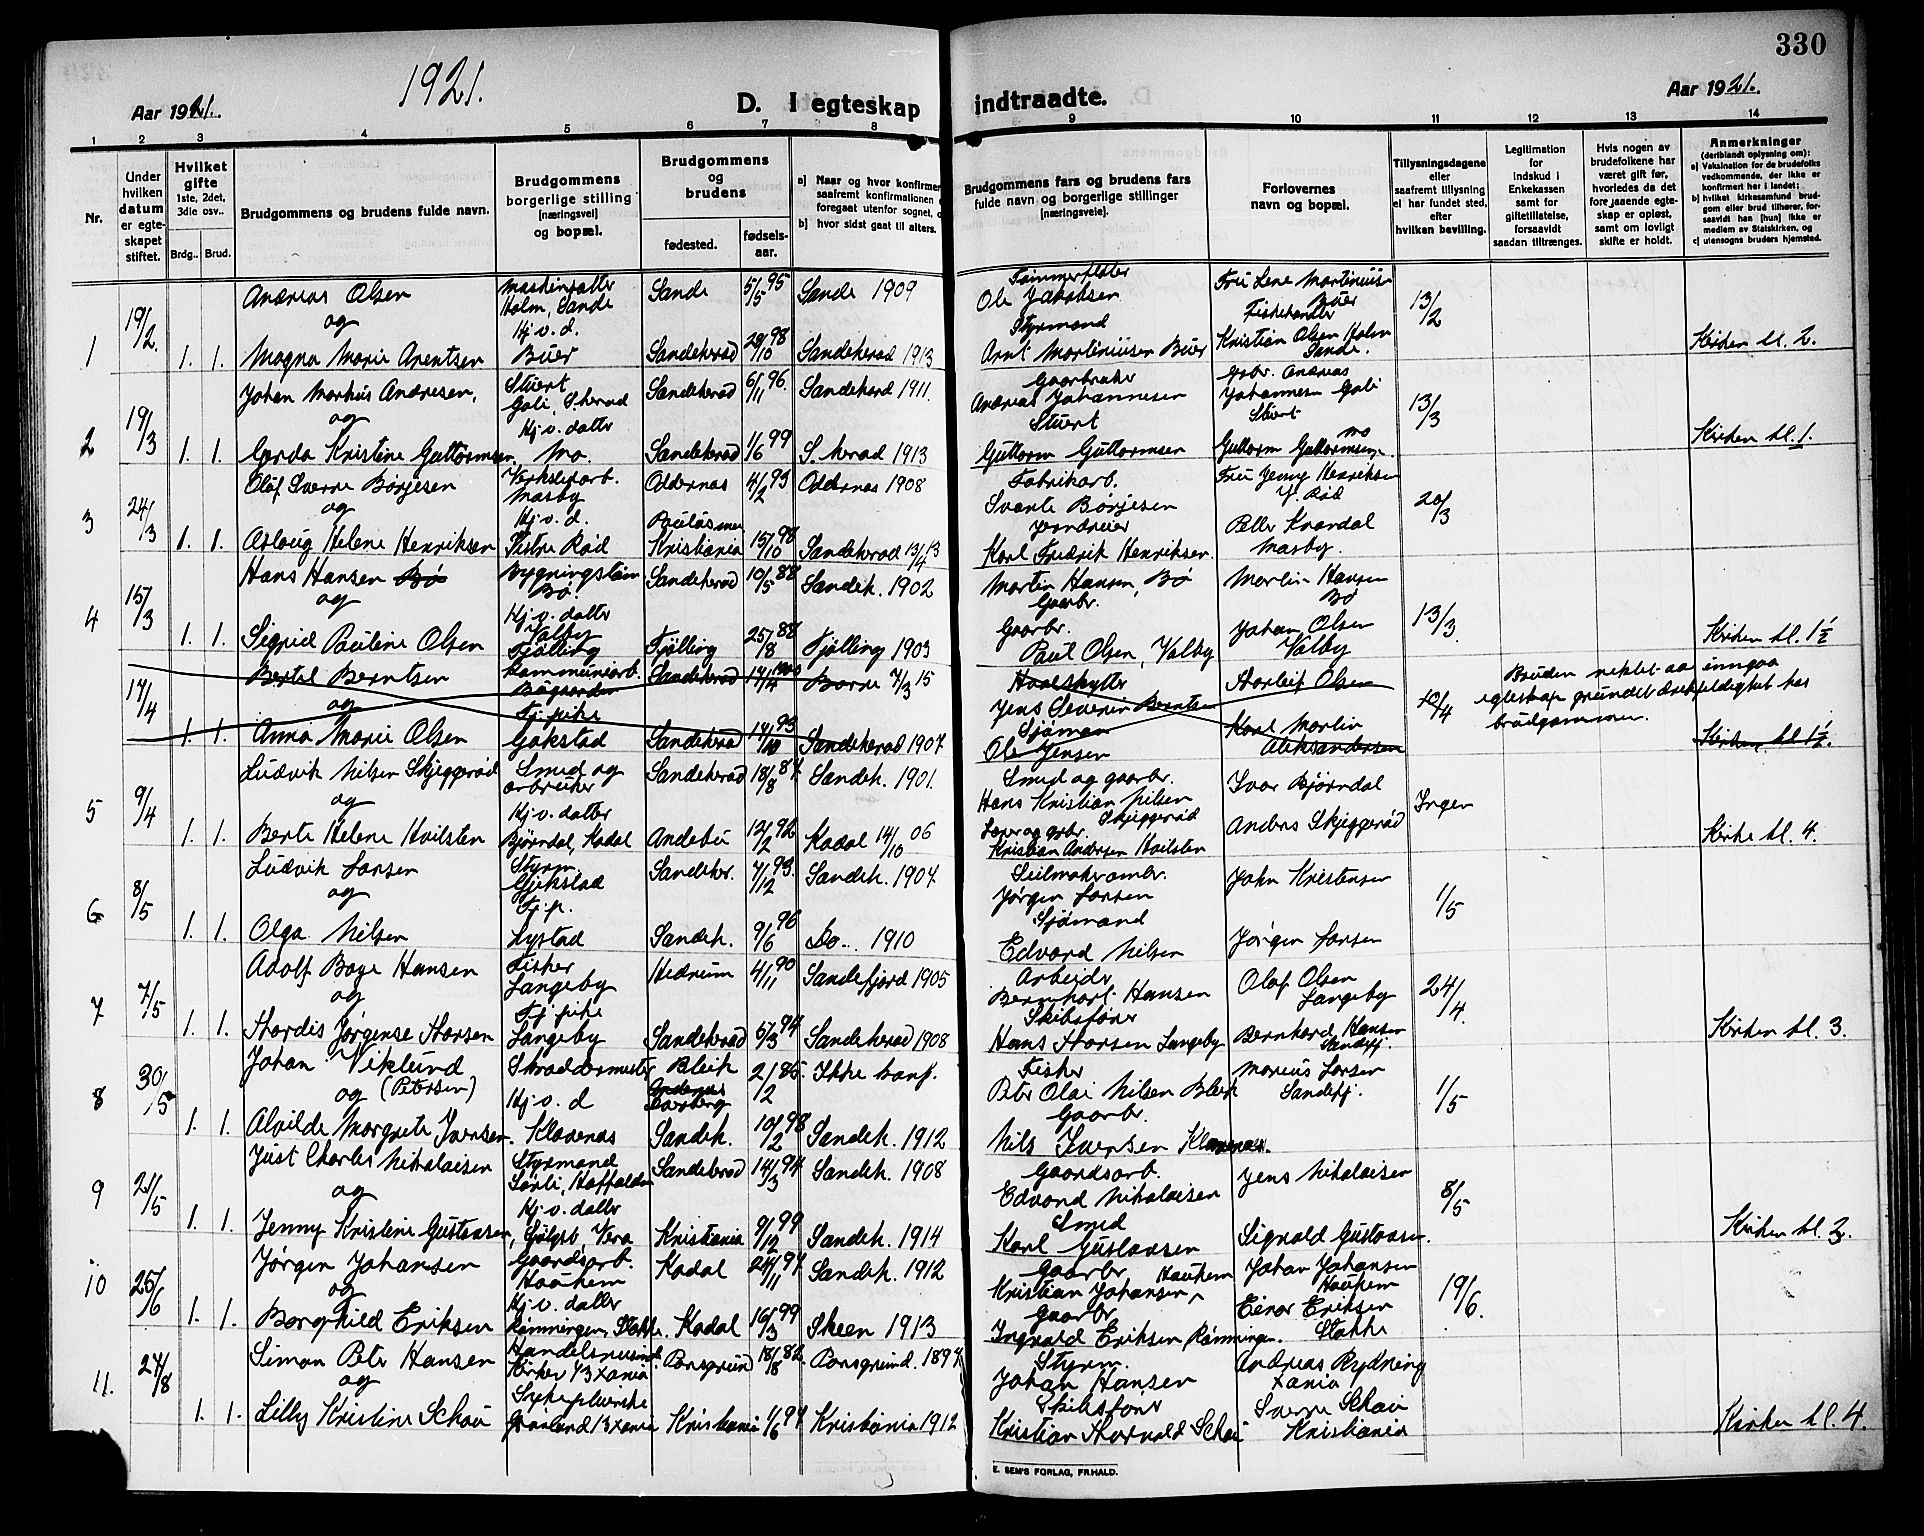 330
1921.
Aar 1921.
D. I egteskap indtraadte.
Aar 1921.
1 2 3 4 5 6 7 8 9 10 11 12 13 14
Nr.
Under hvilken datum er egteskapet stiftet.
Hvilket gifte 1ste, 2det, 3die osv..
Brdg.. Brud.
Brudgommens og brudens fulde navn.
Brudgommens borgerlige stilling [næringsvei] og bopæl.
Brudgommens og brudens
fødested. fødsels-aar.
a) Naar og hvor konfirmer
saafremt konfirmationen
foregaat utenfor sognet,
b) hvor sidst gaat til alters.
Brudgommens fars og brudens fars fulde navn og borgerlige stillinger [næringsvei].
Forlovernes navn og bopæl.
Tillysningsdagene eller saafremt tillysning ei har fundet sted, efter hvilken bevilling.
Legitimation for indskud i Enkekassen samt for giftetillatelse, forsaavidt saadan tiltrænges.
Hvis nogen av brudefolkene har været gift før, hvorledes da det foregaaende egteskap er opløst, samt om lovligt skifte er holdt.
Anmerkninger (deriblandt oplysning om): a) Vaksination for de brudefolks vedkommende, der ikke er konfirmert her i landet; b) hvilket kirkesamfund brudgom eller brud tilhører, forsaavidt han [hun] ikke er medlem av Statskirken, og c) utensogns bruders hjemsted.
1 19/2 1. 1. Andreas Olsen og Magna Marie Arentsen
Holm, Sande Kj. v. d. Buer
Sande 5/5 95 Sande 1909
Sandeherad 28/10 98 Sandeherad 1913
Ole Jakobsen Styrmand Arnt Martiniusen Buer
Fru Lene Martiniusen Buer Kristian Olsen Holm Sande.
13/2 Kirken kl. 2.
2 19/3 1. 1. Johan Markus Andresen, og Gerda Kristine Guttormsen
Stuert Gali, S.herad Kj. v. datter Mo.
Sandeherad 6/11 96. Sandeherad 1911.
Sandeherad 1/6 99 S. herad 1913
Gaarbruker Andreas Johannesen Stuert Guttorm Guttormsen
Gbr. Andreas Johannesen Gali Stuert Guttorm Guttormsen Mo
13/3 Kirken kl. 1.
3 24/3 1. 1. Olaf Sverre Børjesen og Aslaug Helene Henriksen
Verkstedarb. Mosby Kj. v. d. Vestre Rød
Oddernes 4/2 93 Oddernes 1908
Kristiania 15/10 98 Sandeherad 13/4 13
Fabrikarb. Svante Børjesen Karl Fredrik Henriksen.
Fru Jenny Henriksen V. Rød Peller Krondal Mosby.
20/3
4 15/3 1. 1. Hans Hansen Bø og Sigrid Pauline Olsen
Bø. Kj. v. datter Valby Fjølling
Sandeherad 10/5 88 Sandeh. 1902
Fjølling 25/8 88 Fjølling 1903
Martin Hansen, Bø Gaarbr. Gaarbr. Paul Olsen, Valby
Martin Hansen Bø Johan Olsen Valby
13/3. Kirken kl. 1½
17/4 1. 1. Bertel Berntsen og Anna Marie Olsen
Kommunearb. Tj. pike Gokstad
Sandeherad 14/4 1900 Borre 7/3 15
Sandeherad 14/10 93 Sandeherad 1907
Hvalskytter Jens Severin Berntsen Sjøman Ole Jensen
Thorleif Olsen Karl Martin Aleksandersen
10/4 Bruden nektet aa inngaa egteskap grundet hos brudgommen.
Kirken kl 1½.
5 9/4 1. 1. Ludvik Nilsen Skjeggerød og Berte Helene Hvilsten
Smed og Kj. v. datter Bjørndal, Kodal
Sandeherad 18/8 87 Sandeh. 1901.
Andebu 12/2 92 Kodal 14/10 06
Smed og gaarbr. Hans Kristian Nilsen Skjeggerød Kristian Andersen Hvilsten
Ivar Bjørndal Anders Skjeggerød
Ingen Kirke kl. 4.
6 8/5 1. 1. Ludvik Larsen og Olga Nilsen
Styrm. Gjekstad Tj. p. Lystad
Sandeher. 7/12 93. Sandeh. 1907.
Sandeh. 9/6 96 Do. 1910
Jørgen Larsen Sjømand Edvard Nilsen
John Kristensen Jørgen Larsen
1/5
7 7/5 1. 1. Adolf Boye Hansen og Thordis Jørgense Thorsen
Fisker Langeby Tj. pike Langeby
Hedrum 4/11 90 Sandefjord 1905
Sandeherad 5/3 94 Sandeherad 1908
Arbeider Bernhart Hansen Skibsfører Hans Thorsen Langeby
Olaf Olsen Langeby Bernhard Hansen Sandefj.
24/4. Kirken kl. 3.
8 30/5 1. 1. Johan Viklund (Petersen) og Alvilde Margrete Iversen.
Skræddermester Kj. v. d Klavenes
Bleik 2/12 85. Ikke konf.
Sandeh. 10/2 98 Sandeh. 1912
Fisker Peter Olai Nilsen Bleik Gaarbr. Nils Iversen Klavenes.
Marius Larsen Sandefj.
1/5
9 21/5 1. 1. Just Charles Nikolaisen og Jenny Kristine Gustavsen,
Styrmand Sørli, Kj. v. datter Vera
Sandeherad 14/3 94 Sandeh. 1908
Kristiania 9/12 99 Sandeh. 1914
Gaardsarb. Edvard Nikolaisen Smed Karl Gustavsen
Jens Nikolaisen Sigvald Gustavsen.
8/5 Kirken kl. 3.
10 25/6 1. 1. Jørgen Johansen og Borghild Eriksen
Gaardsarb. Haukem Kj. v. datter Rønningen, Stokke.
Kodal 24/11 97 Sandeh. 1912
Kodal 16/3 99 Skeen 1913
Gaarbr Kristian Johansen, Haukem Gaarbr Ingvald Eriksen Rønningen.
Johan Johansen Haukem Einar Eriksen Stokke
19/6.
11. 27/8 1. 1. Simon Peter Hansen og Lilly Kristine Schou
Porsgrund 18/8 82. Porsgrund. 1897
Kristiania 1/6 97 Kristiania 1912
Styrm. Johan Hansen Skibsfører Kristian Thorvald Schou
Andreas Rydning Xania Sverre Schou Kristiania
Kirken kl. 4.
E. SEM'S FORLAG, FR.HALD.